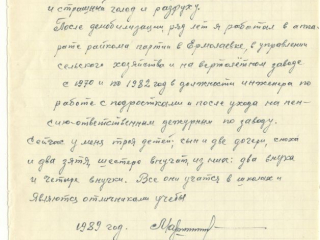 и страшный голод и разруху.
После демобилизации ряд лет я работал в аппа-
рате райкома партии в Ермолаевке, в управлении
сельского хозяйства и на вертолётном заводе
с 1970 и по 1982 год в должности инженера по
работе с подростками и после ухода на пен-
сию - ответственным дежурным по заводу.
Сейчас у меня трое детей: сын и две дочери, сноха
и два зятя, шестеро внучат, из них: два внука
и четыре внучки. Все они учатся в школах и
являются отличниками учёбы
1989 год.